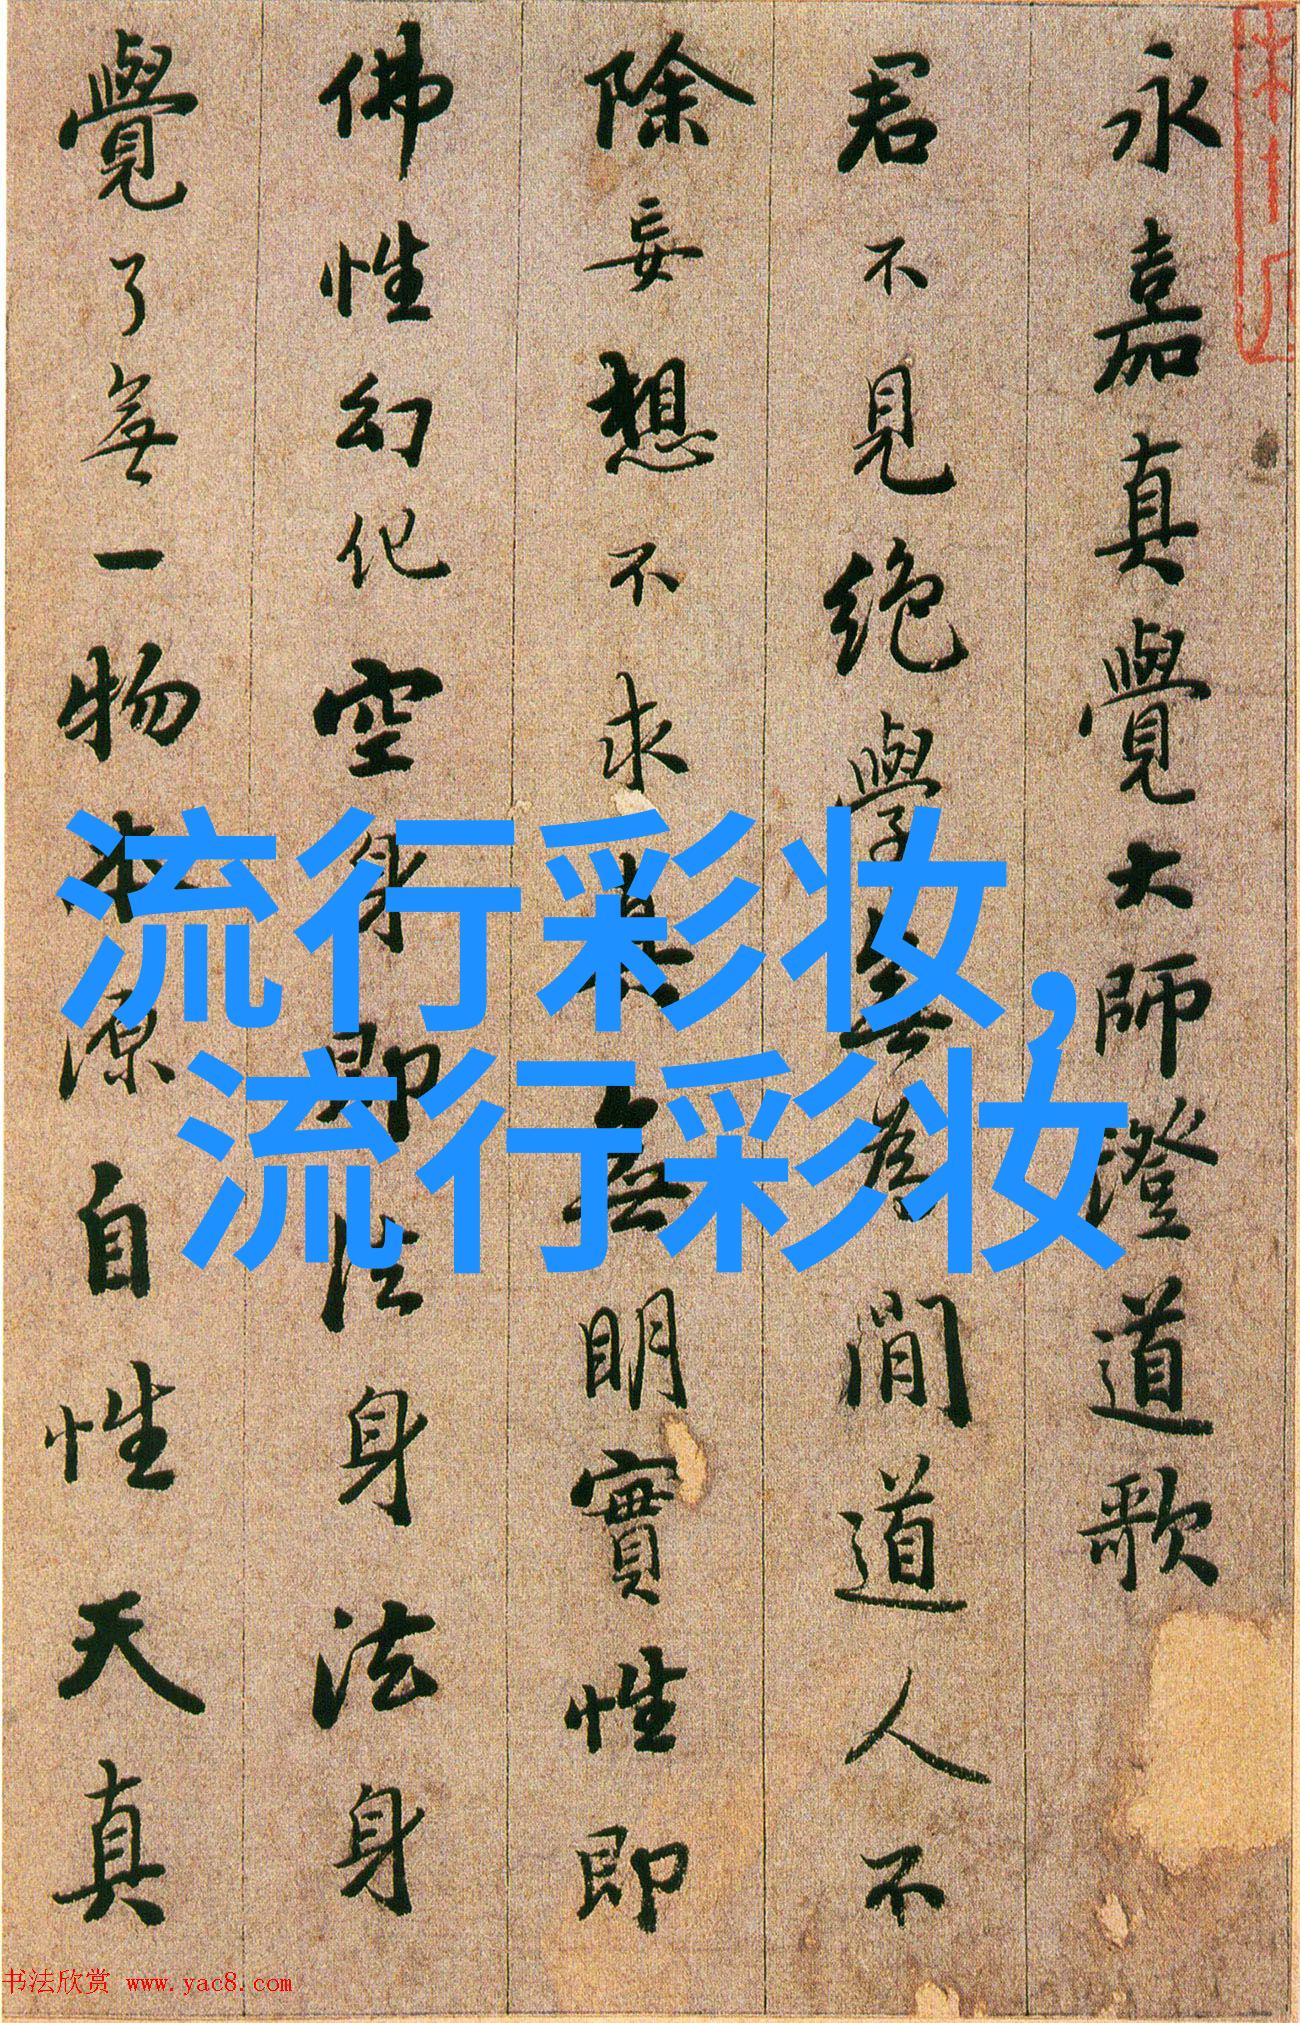 永嘉真覺大師澄道歌
君不見絕學無為閒道人不
除妄想不求真無明實性即
佛性幻化空身即法身法身
覺了無一物本源自性天真
流行彩妆,
流行彩妆
书法欣赏 www.yac8.com